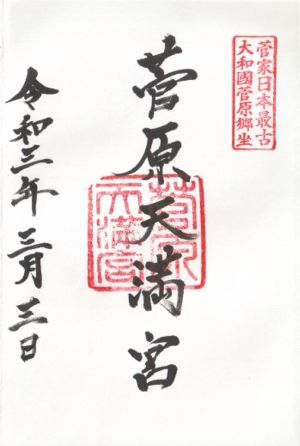 菅家日本最古
大和國菅原郷坐
菅原天満宮
菅原天満宮
令和三年三月三日